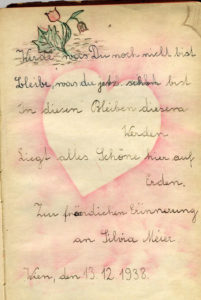 Werde, was Du noch nicht bist
Bleibe, was du jetz schön bist
In diesen Bleiben diesem
Werden
Liegt alles Schöne hier auf
Erden.
Zur frördlichen Erinnerung
an Silvia Meier
Wien, den 13. 12 1938.